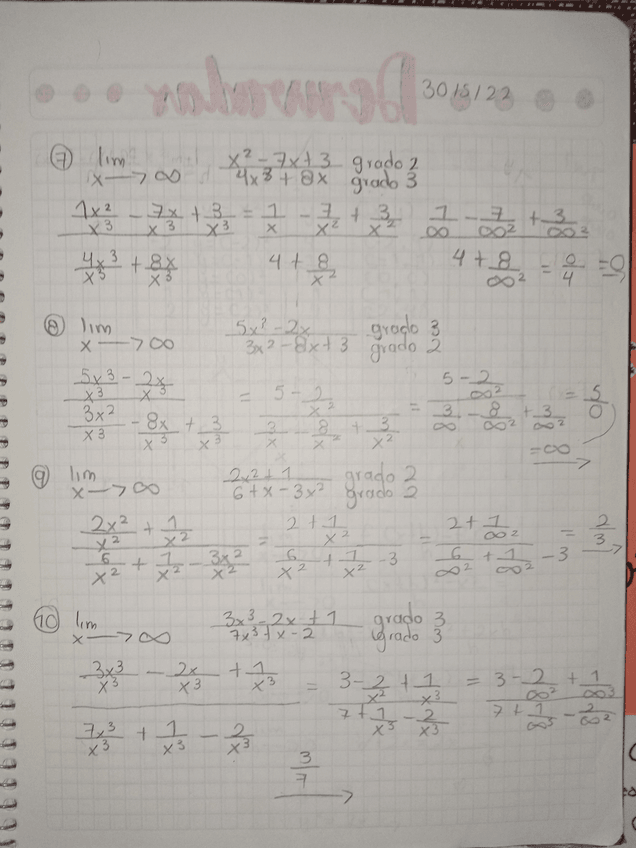 30/5/22
⑦ lim x→∞ (x² - 7x + 3)/(4x³ + 8x) grado 2 grado 3
(1x²/x³ - 7x/x³ + 3/x³)/(4x³/x³ + 8x/x³) = (1/x - 7/x² + 3/x²)/(4 + 8/x²) (1/∞ - 7/∞² + 3/∞³)/(4 + 8/∞²) = 0/4 = 0
⑧ lim x→∞ (5x³ - 2x)/(3x² - 8x + 3) grado 3 grado 2
(5x³/x³ - 2x/x³)/(3x²/x³ - 8x/x³ + 3/x³) = (5 - 2/x²)/(3/x - 8/x² + 3/x²) = (5 - 2/∞²)/(3/∞ - 8/∞² + 3/∞²) = 5/0
= ∞
⑨ lim x→∞ (2x² + 1)/(6 + x - 3x²) grado 2 grado 2
(2x²/x² + 1/x²)/(6/x² + 1/x² - 3x²/x²) = (2 + 1/x²)/(6/x² + 1/x² - 3) = (2 + 1/∞²)/(6/∞² + 1/∞² - 3) = 2/3
⑩ lim x→∞ (3x³ - 2x + 1)/(7x³ + x - 2) grado 3 grado 3
(3x³/x³ - 2x/x³ + 1/x³)/(7x³/x³ + 1/x³ - 2/x³) = (3 - 2/x² + 1/x³)/(7 + 1/x³ - 2/x³) = (3 - 2/∞² + 1/∞³)/(7 + 1/∞³ - 2/∞²)
3/7